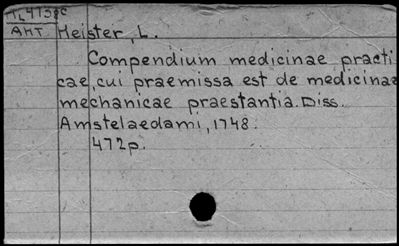 Heister, L.
АНТ
Compendium medicinae practi
cae, cui praemissa est de medicinae
mechanicae praestantia. Diss.
Amstelaedami, 1748.
472p.